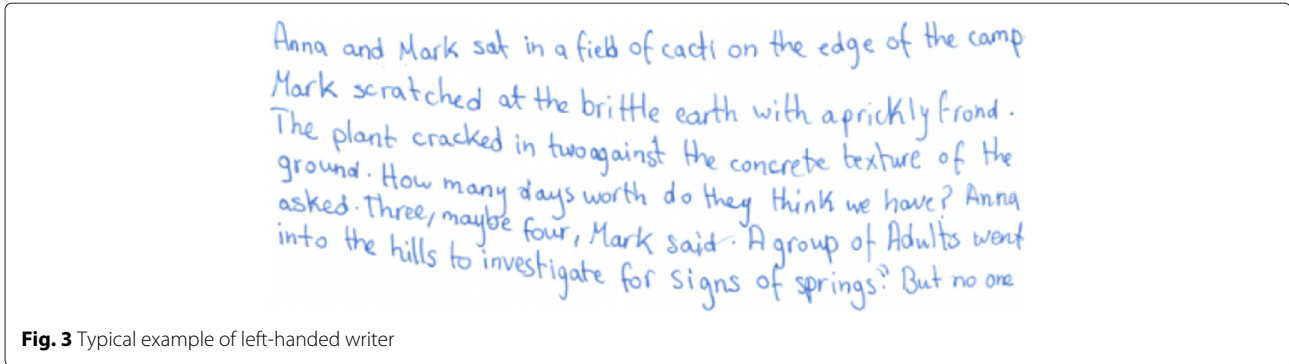 Anna and Mark sat in a field of cacti on the edge of the camp
Mark scratched at the brittle earth with a prickly frond.
The plant cracked in two against the concrete texture of the
ground. How many days worth do they think we have? Anna
asked. Three, maybe four, Mark said. A group of Adults went
into the hills to investigate for signs of springs? But no one
Fig. 3 Typical example of left-handed writer